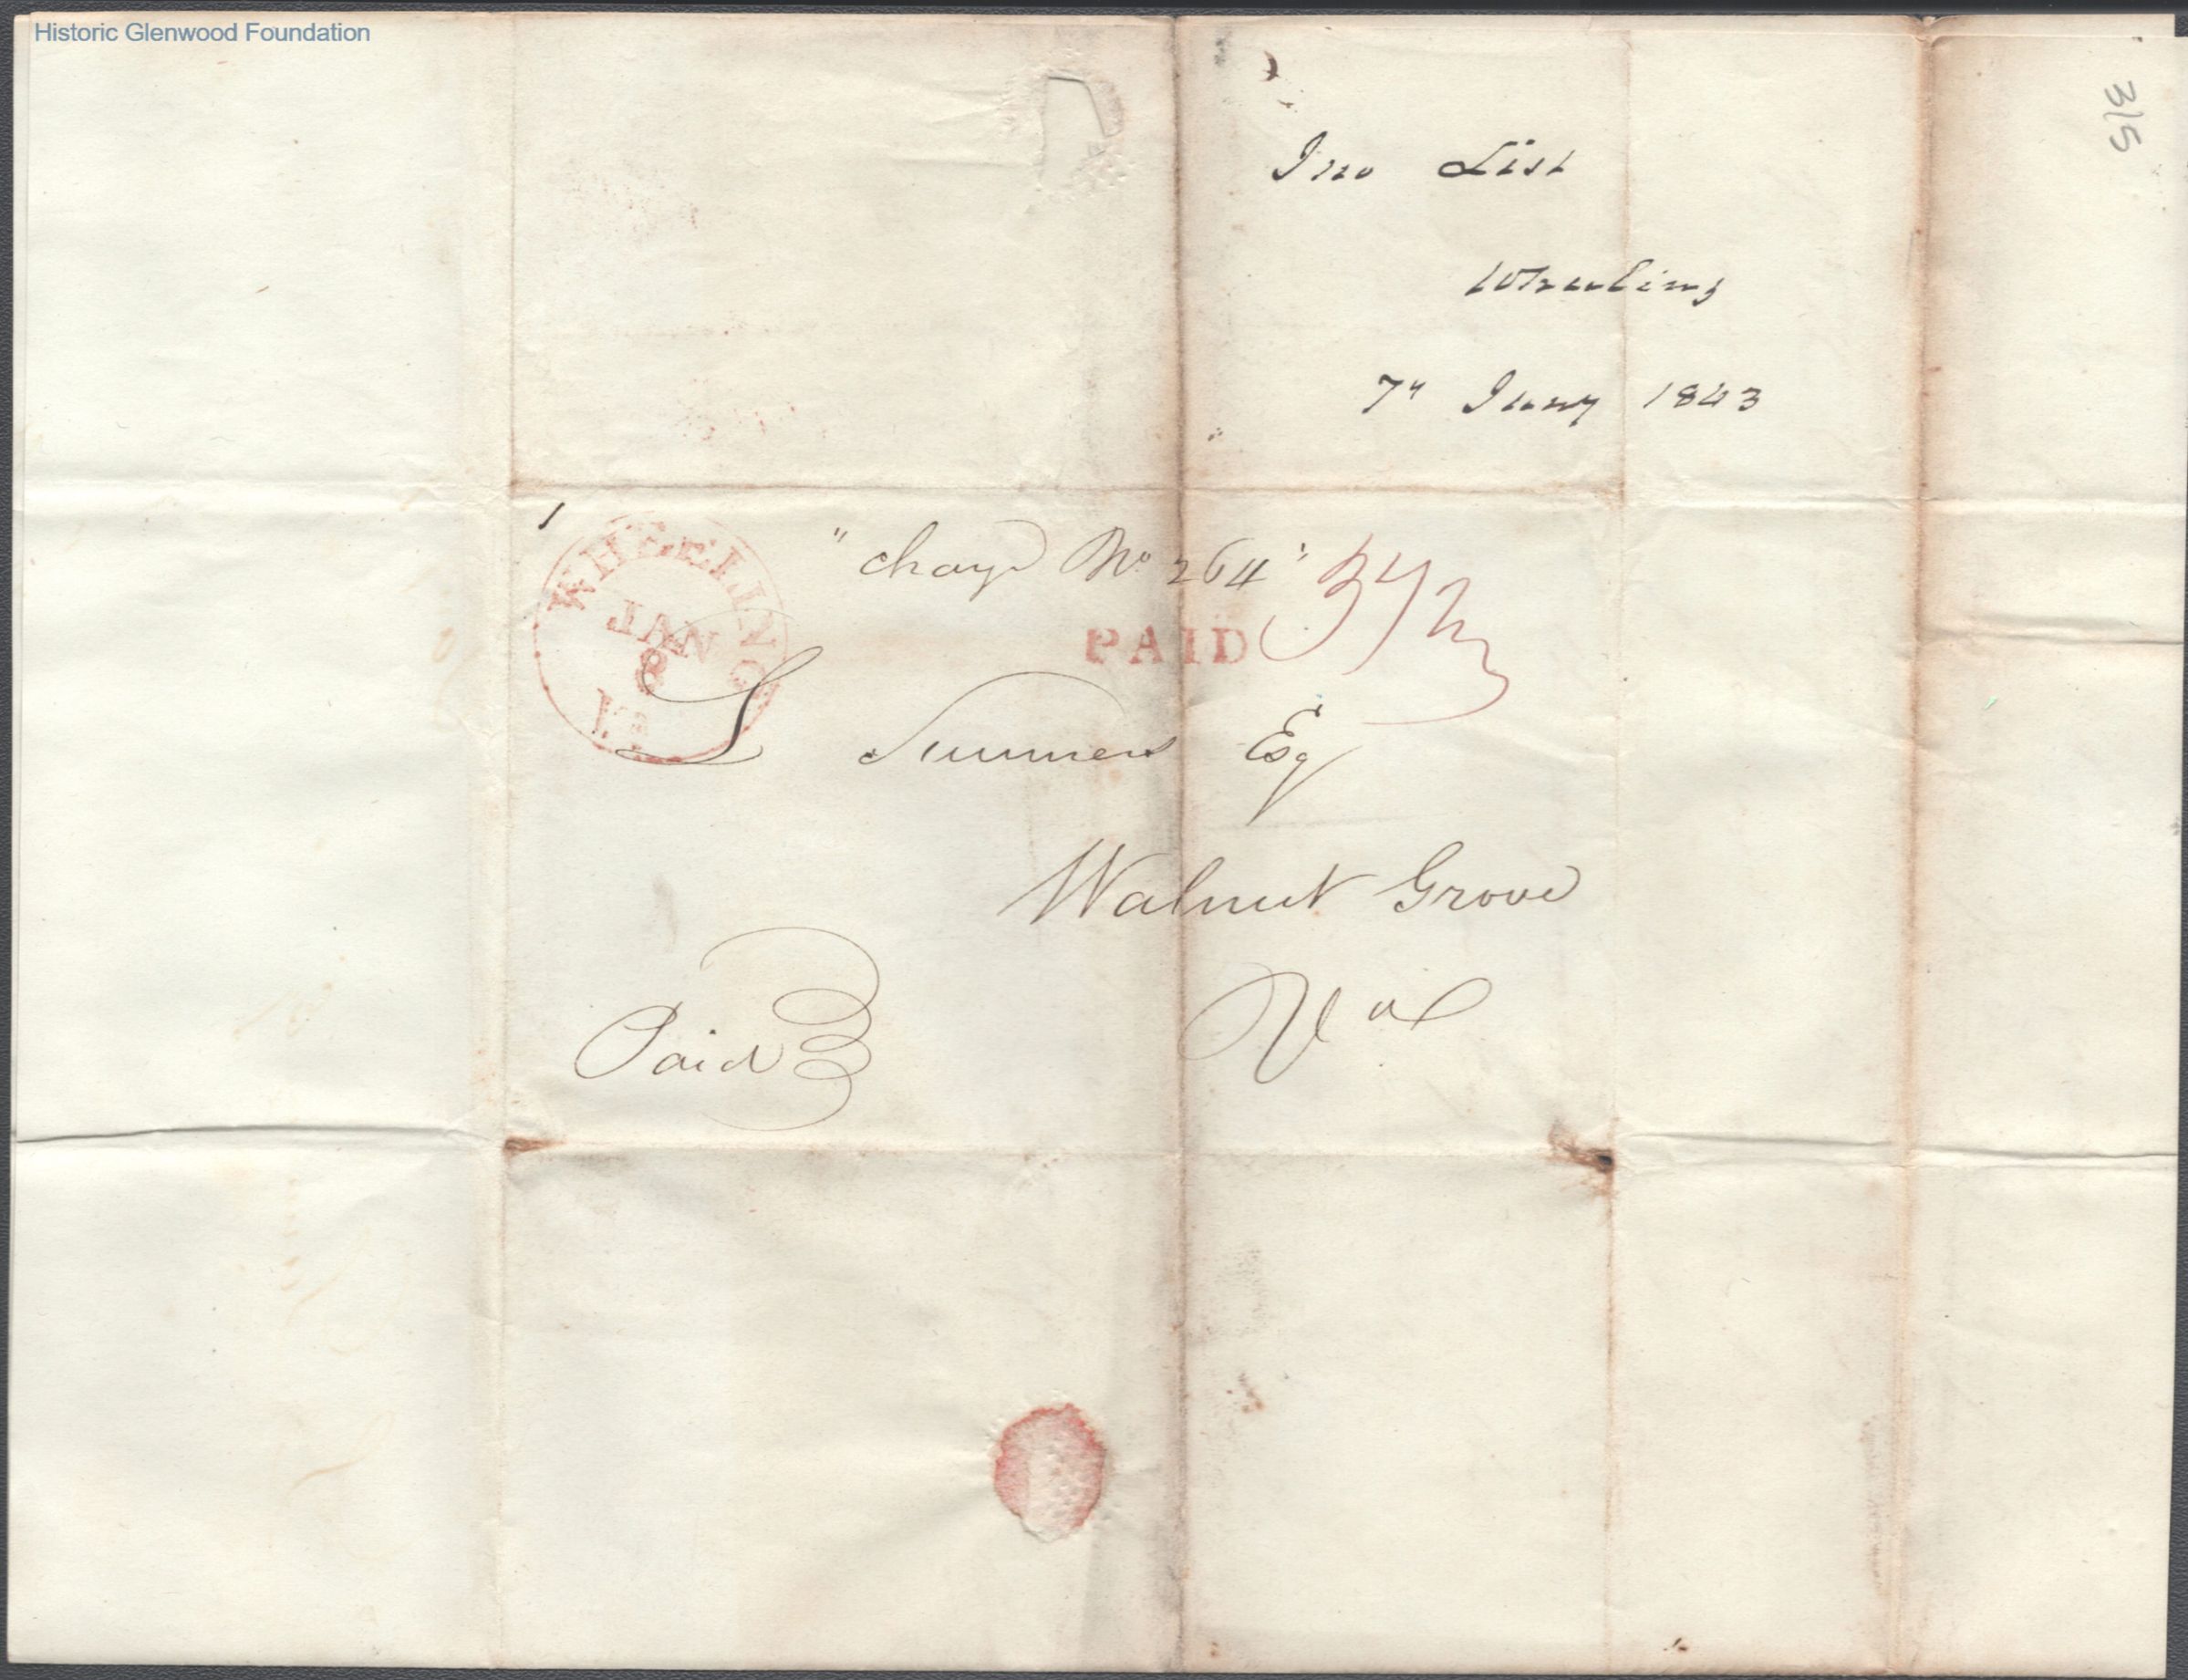 Historic Glenwood Foundation
315
Jno List
Wheeling
7" Jany 1843
"charge No 264"
37½
WHEELING
JAN
8
Va.
PAID
L Summers Esq
Walnut Grove
Va
Paid